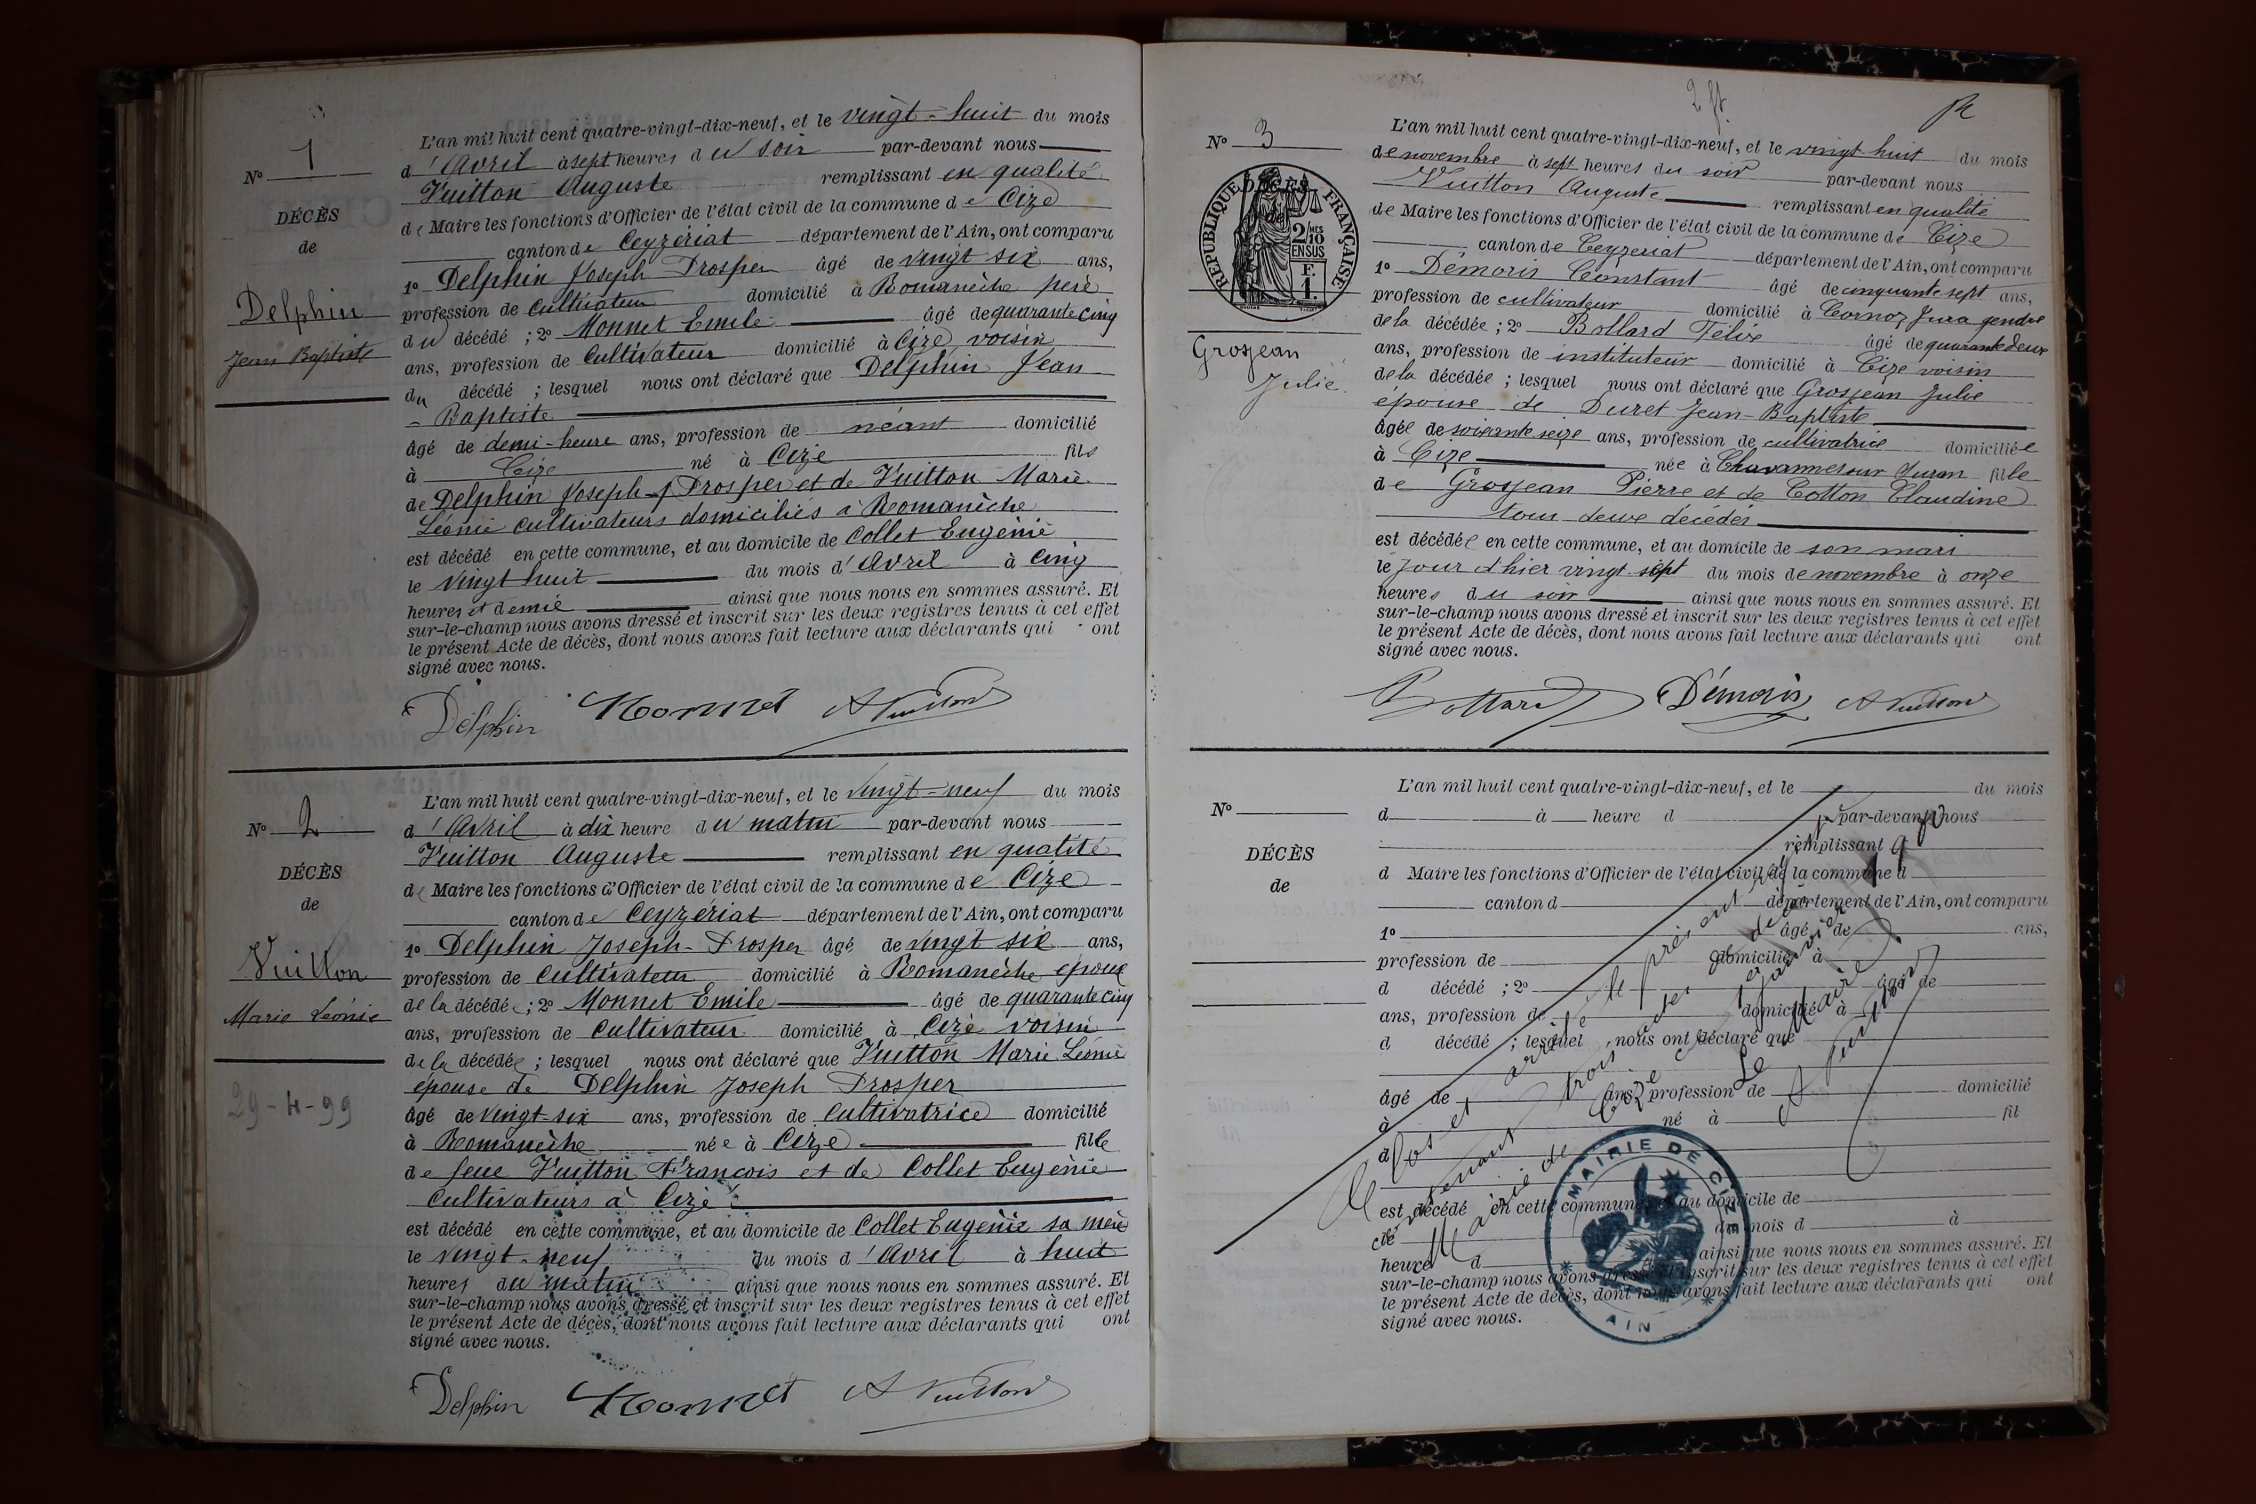 N° 1
DÉCÈS
de
Delphin
Jean Baptiste
L'an mil huit cent quatre-vingt-dix-neuf, et le vingt-huit du mois
d'Avril à sept heures du soir par-devant nous
Vuitton Auguste remplissant en qualité
de Maire les fonctions d'Officier de l'état civil de la commune de Cize
canton de Ceyzériat département de l'Ain, ont comparu
1° Delphin Joseph Prosper âgé de vingt six ans,
profession de cultivateur domicilié à Romanèche père
du décédé ; 2° Monnet Emile âgé de quarante cinq
ans, profession de Cultivateur domicilié à Cize voisin
du décédé ; lesquel nous ont déclaré que Delphin Jean
- Baptiste
âgé de demi-heure ans, profession de néant domicilié
à Cize né à Cize fils
de Delphin Joseph-Prosper et de Vuitton Marie
Léonie cultivateurs domiciliés à Romanèche
est décédé en cette commune, et au domicile de Collet Eugénie
le vingt huit du mois d'Avril à cinq
heures et demie ainsi que nous nous en sommes assuré. Et
sur-le-champ nous avons dressé et inscrit sur les deux registres tenus à cet effet
le présent Acte de décès, dont nous avons fait lecture aux déclarants qui ont
signé avec nous.
Delphin Monnet A Vuitton
N° 2
DÉCÈS
de
Vuitton
Marie Léonie
29-4-99
L'an mil huit cent quatre-vingt-dix-neuf, et le vingt-neuf du mois
d'Avril à dix heure du matin par-devant nous
Vuitton Auguste remplissant en qualité
de Maire les fonctions d'Officier de l'état civil de la commune de Cize
canton de Ceyzériat département de l'Ain, ont comparu
1° Delphin Joseph-Prosper âgé de vingt six ans,
profession de cultivateur domicilié à Romanèche époux
de la décédée ; 2° Monnet Emile âgé de quarante cinq
ans, profession de Cultivateur domicilié à Cize voisin
de la décédée ; lesquel nous ont déclaré que Vuitton Marie Léonie
épouse de Delphin Joseph Prosper
âgé de vingt-six ans, profession de Cultivatrice domicilié
à Romanèche née à Cize fille
de feue Vuitton François et de Collet Eugénie
Cultivateurs à Cize
est décédé en cette commune, et au domicile de Collet Eugénie sa mère
le vingt-neuf du mois d'Avril à huit
heures du matin ainsi que nous nous en sommes assuré. Et
sur-le-champ nous avons dressé et inscrit sur les deux registres tenus à cet effet
le présent Acte de décès, dont nous avons fait lecture aux déclarants qui ont
signé avec nous.
Delphin Monnet A Vuitton
2 ft
N° 3
DÉCÈS
de
RÉPUBLIQUE FRANÇAISE
2/10 MES
EN SUS
F.
1.
Grosjean
Julie
L'an mil huit cent quatre-vingt-dix-neuf, et le vingt huit du mois
de novembre à sept heures du soir par-devant nous
Vuitton Auguste remplissant en qualité
de Maire les fonctions d'Officier de l'état civil de la commune de Cize
canton de Ceyzeriat département de l'Ain, ont comparu
1° Démoris Constant âgé de cinquante sept ans,
profession de cultivateur domicilié à Cornoz Jura gendre
de la décédée ; 2° Bollard Félix âgé de quarante deux
ans, profession de instituteur domicilié à Cize voisin
de la décédée ; lesquel nous ont déclaré que Grosjean Julie
épouse de Duret Jean-Baptiste
âgée de soixante seize ans, profession de cultivatrice domiciliée
à Cize née à Chavannes sur Suran fille
de Grosjean Pierre et de Cotton Claudine
tous deux décédés
est décédée en cette commune, et au domicile de son mari
le jour d'hier vingt sept du mois de novembre à onze
heures du soir ainsi que nous nous en sommes assuré. Et
sur-le-champ nous avons dressé et inscrit sur les deux registres tenus à cet effet
le présent Acte de décès, dont nous avons fait lecture aux déclarants qui ont
signé avec nous.
Bollard Démoris A Vuitton
N°
DÉCÈS
de
L'an mil huit cent quatre-vingt-dix-neuf, et le du mois
d à heure d par-devant nous
remplissant
d Maire les fonctions d'Officier de l'état civil de la commune d
canton d département de l'Ain, ont comparu
1° âgé de ans,
profession de domicilié à
d décédé ; 2° âgé de
ans, profession de domicilié à
d décédé ; lesquel nous ont déclaré que
âgé de ans, profession de domicilié
à né à fil
d
est décédé en cette commune, et au domicile de
le du mois d à
heure d ainsi que nous nous en sommes assuré. Et
sur-le-champ nous avons dressé et inscrit sur les deux registres tenus à cet effet
le présent Acte de décès, dont nous avons fait lecture aux déclarants qui ont
signé avec nous.
Clos et arrêté le présent registre
contenant trois actes de décès
Mairie de Cize ce 1er janvier 1900
Le Maire
A Vuitton
MAIRIE DE CIZE
AIN